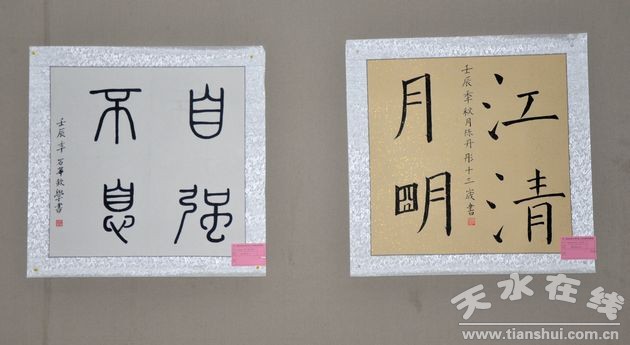 自强
不息
壬辰年 學書
江清
月明
壬辰季秋月陈丹彤十三歲書
天水在线
www.tianshui.com.cn